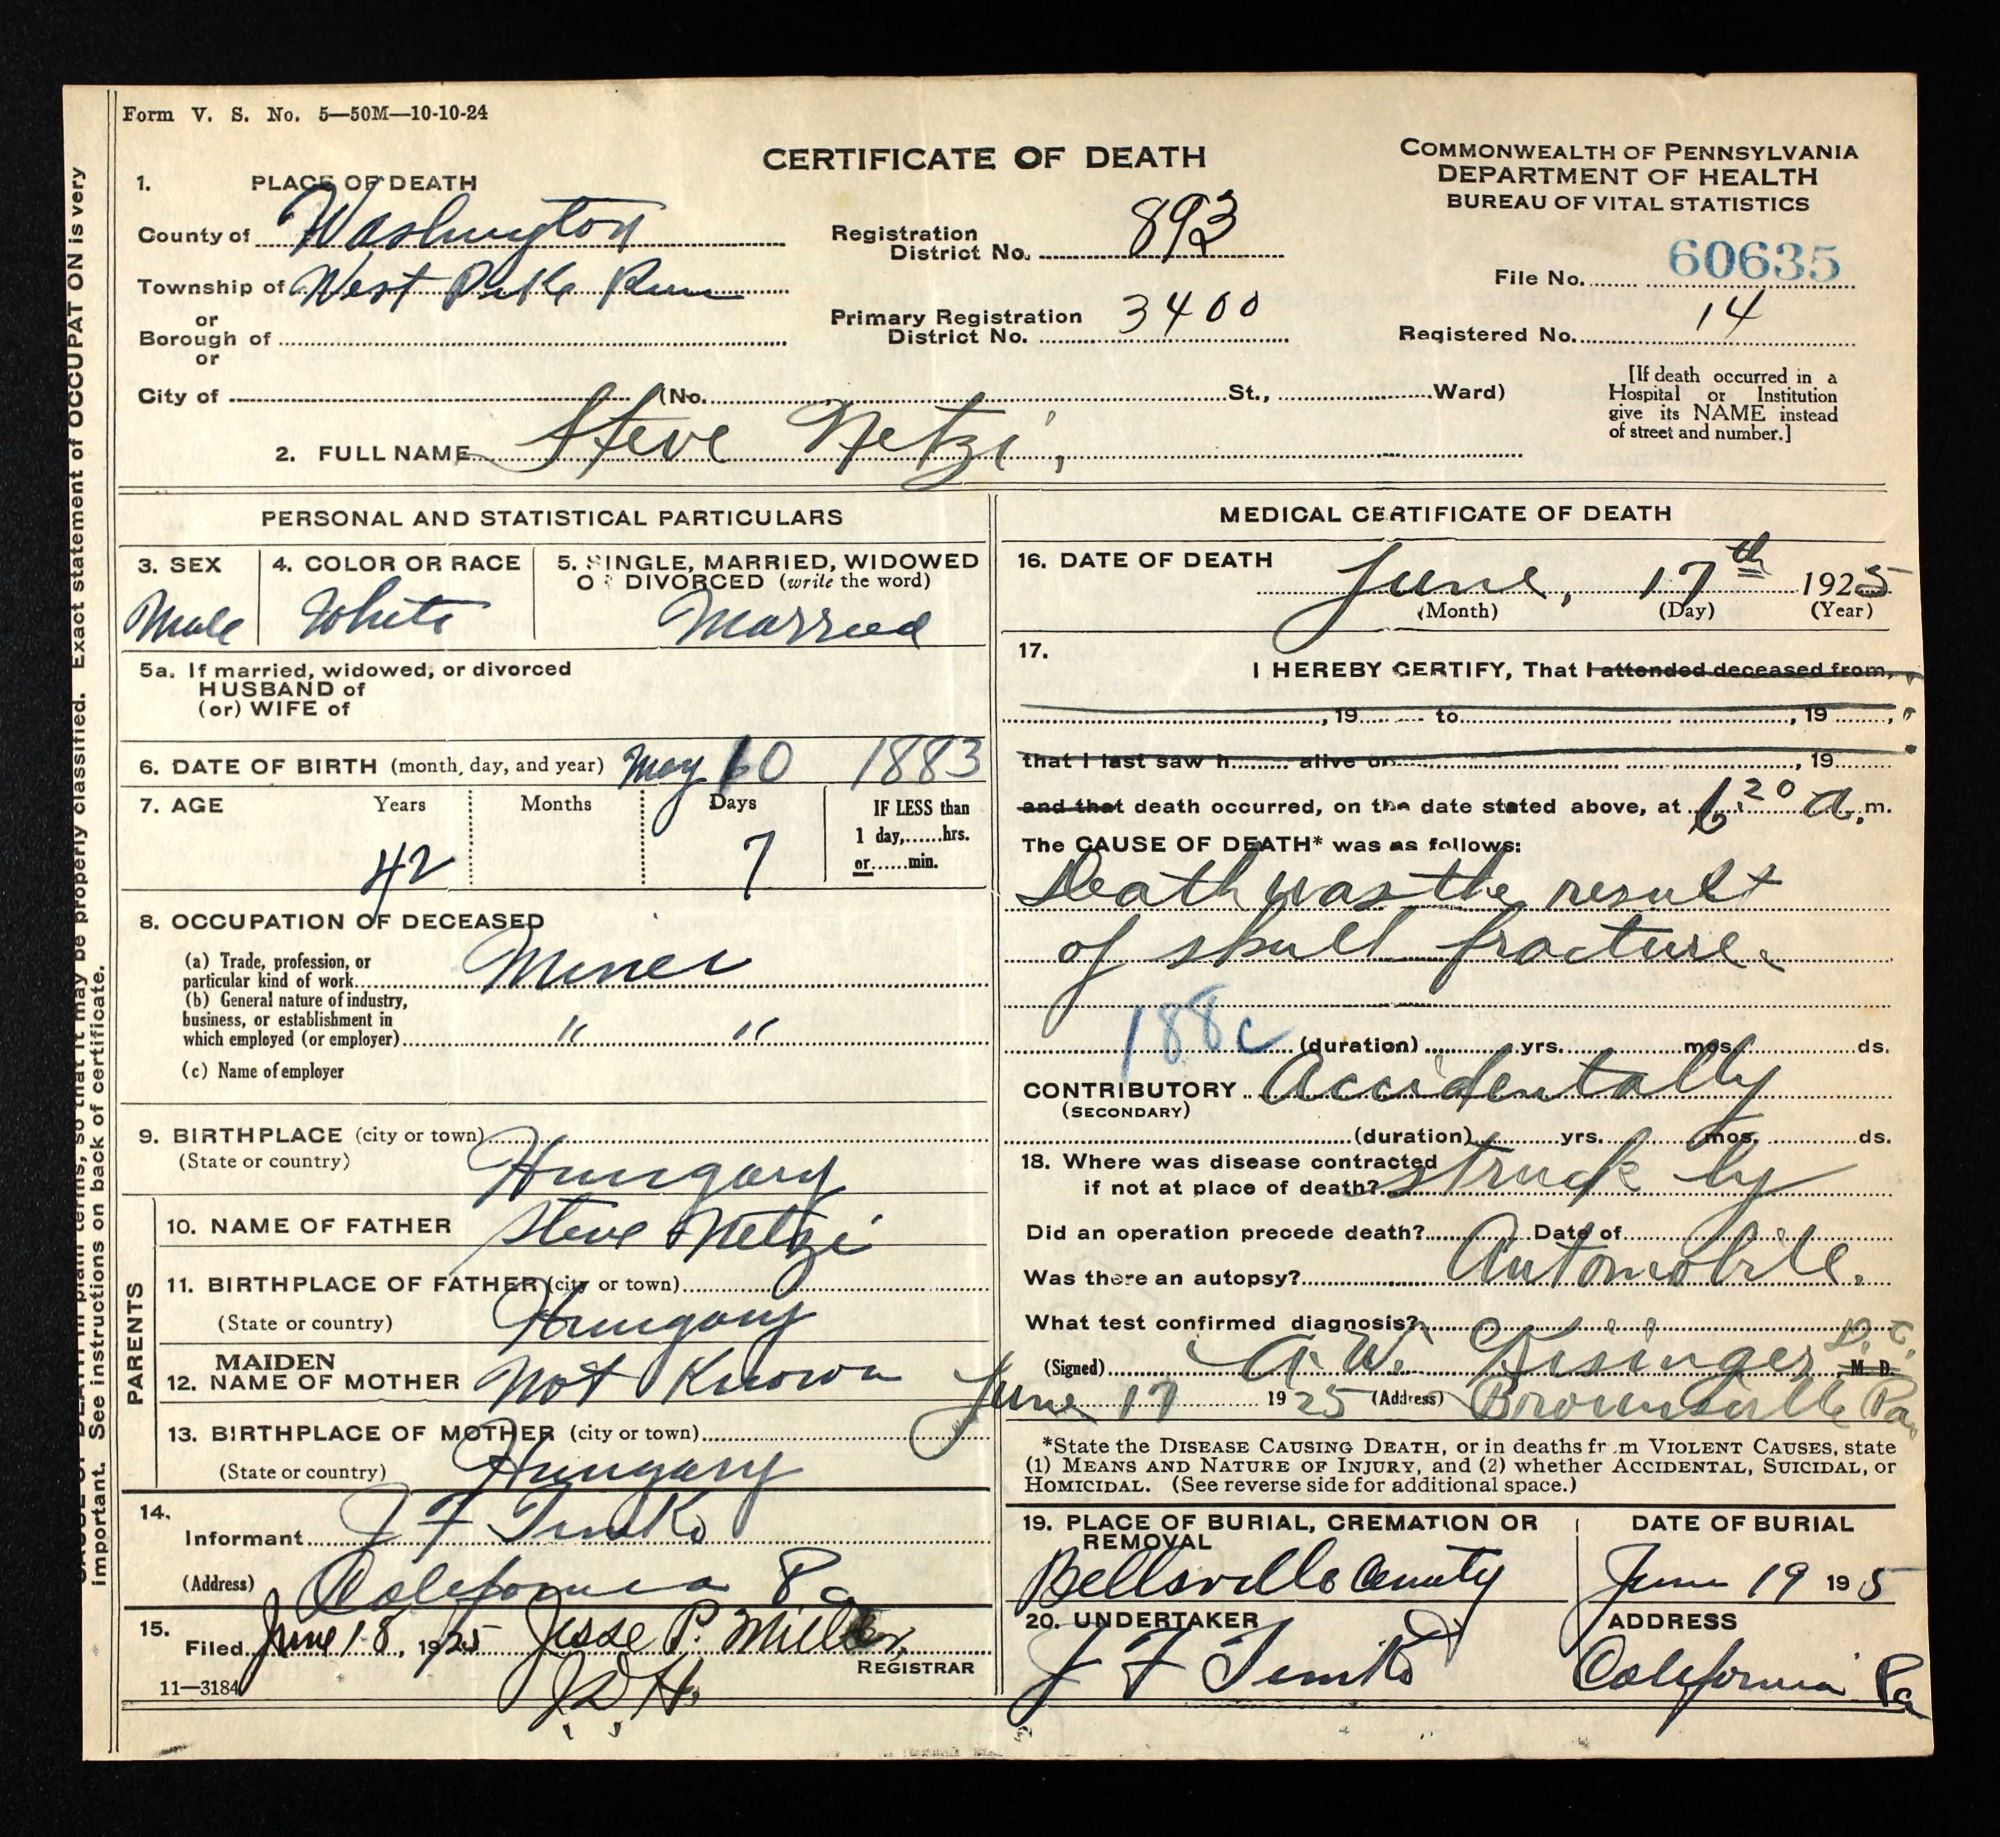 Form V. S. No. 5—50M—10-10-24
CERTIFICATE OF DEATH
COMMONWEALTH OF PENNSYLVANIA
DEPARTMENT OF HEALTH
BUREAU OF VITAL STATISTICS
1. PLACE OF DEATH
County of Washington
Township of West Pike Run
or
Borough of
or
City of (No. St., Ward)
Registration District No. 893
Primary Registration District No. 3400
File No. 60635
Registered No. 14
[If death occurred in a
Hospital or Institution
give its NAME instead
of street and number.]
2. FULL NAME Steve Netzi,
PERSONAL AND STATISTICAL PARTICULARS
3. SEX
Male
4. COLOR OR RACE
White
5. SINGLE, MARRIED, WIDOWED
OR DIVORCED (write the word)
Married
5a. If married, widowed, or divorced
HUSBAND of
(or) WIFE of
6. DATE OF BIRTH (month, day, and year) May 10 1883
7. AGE Years Months Days
42 7
IF LESS than
1 day,......hrs.
or......min.
8. OCCUPATION OF DECEASED
(a) Trade, profession, or
particular kind of work Miner
(b) General nature of industry,
business, or establishment in
which employed (or employer) " "
(c) Name of employer
9. BIRTHPLACE (city or town)
(State or country) Hungary
PARENTS
10. NAME OF FATHER Steve Netzi
11. BIRTHPLACE OF FATHER (city or town)
(State or country) Hungary
12. MAIDEN NAME OF MOTHER Not Known
13. BIRTHPLACE OF MOTHER (city or town)
(State or country) Hungary
14.
Informant J F Timko
(Address) California Pa
15.
Filed June 18, 1925 Jesse P. Miller,
REGISTRAR
J.D.H.
11—3184
MEDICAL CERTIFICATE OF DEATH
16. DATE OF DEATH
June, 17th 1925
(Month) (Day) (Year)
17.
I HEREBY CERTIFY, That I attended deceased from,
, 19 to , 19 ,
that I last saw h alive on , 19
and that death occurred, on the date stated above, at 6.20 a.m.
The CAUSE OF DEATH* was as follows:
Death was the result
of skull fracture.
188c (duration) yrs. mos. ds.
CONTRIBUTORY Accidentally
(SECONDARY)
(duration) yrs. mos. ds.
18. Where was disease contracted
if not at place of death? struck by
Did an operation precede death? Date of
Was there an autopsy? Automobile.
What test confirmed diagnosis?
(Signed) A. W. Kisinger D.C. M. D.
June 17 1925 (Address) Brownsville Pa.
*State the DISEASE CAUSING DEATH, or in deaths from VIOLENT CAUSES, state
(1) MEANS AND NATURE OF INJURY, and (2) whether ACCIDENTAL, SUICIDAL, or
HOMICIDAL. (See reverse side for additional space.)
19. PLACE OF BURIAL, CREMATION OR
REMOVAL
Bellsville County
DATE OF BURIAL
June 19 195
20. UNDERTAKER
J F Timko
ADDRESS
California Pa
be properly classified. Exact statement of OCCUPATION is very
important. See instructions on back of certificate.